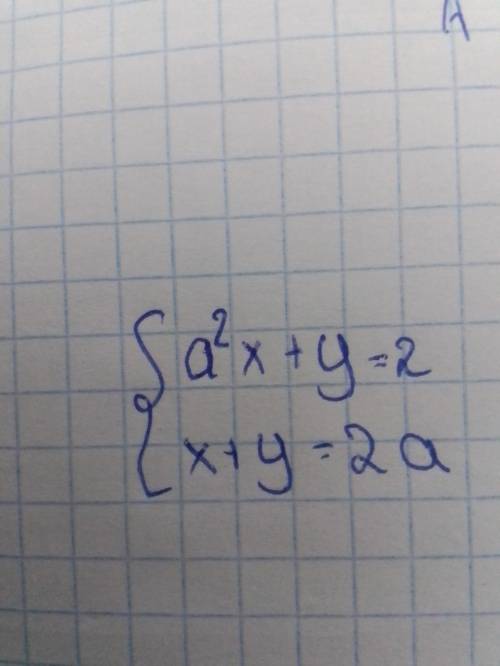 a²x+y=2
x+y=2a